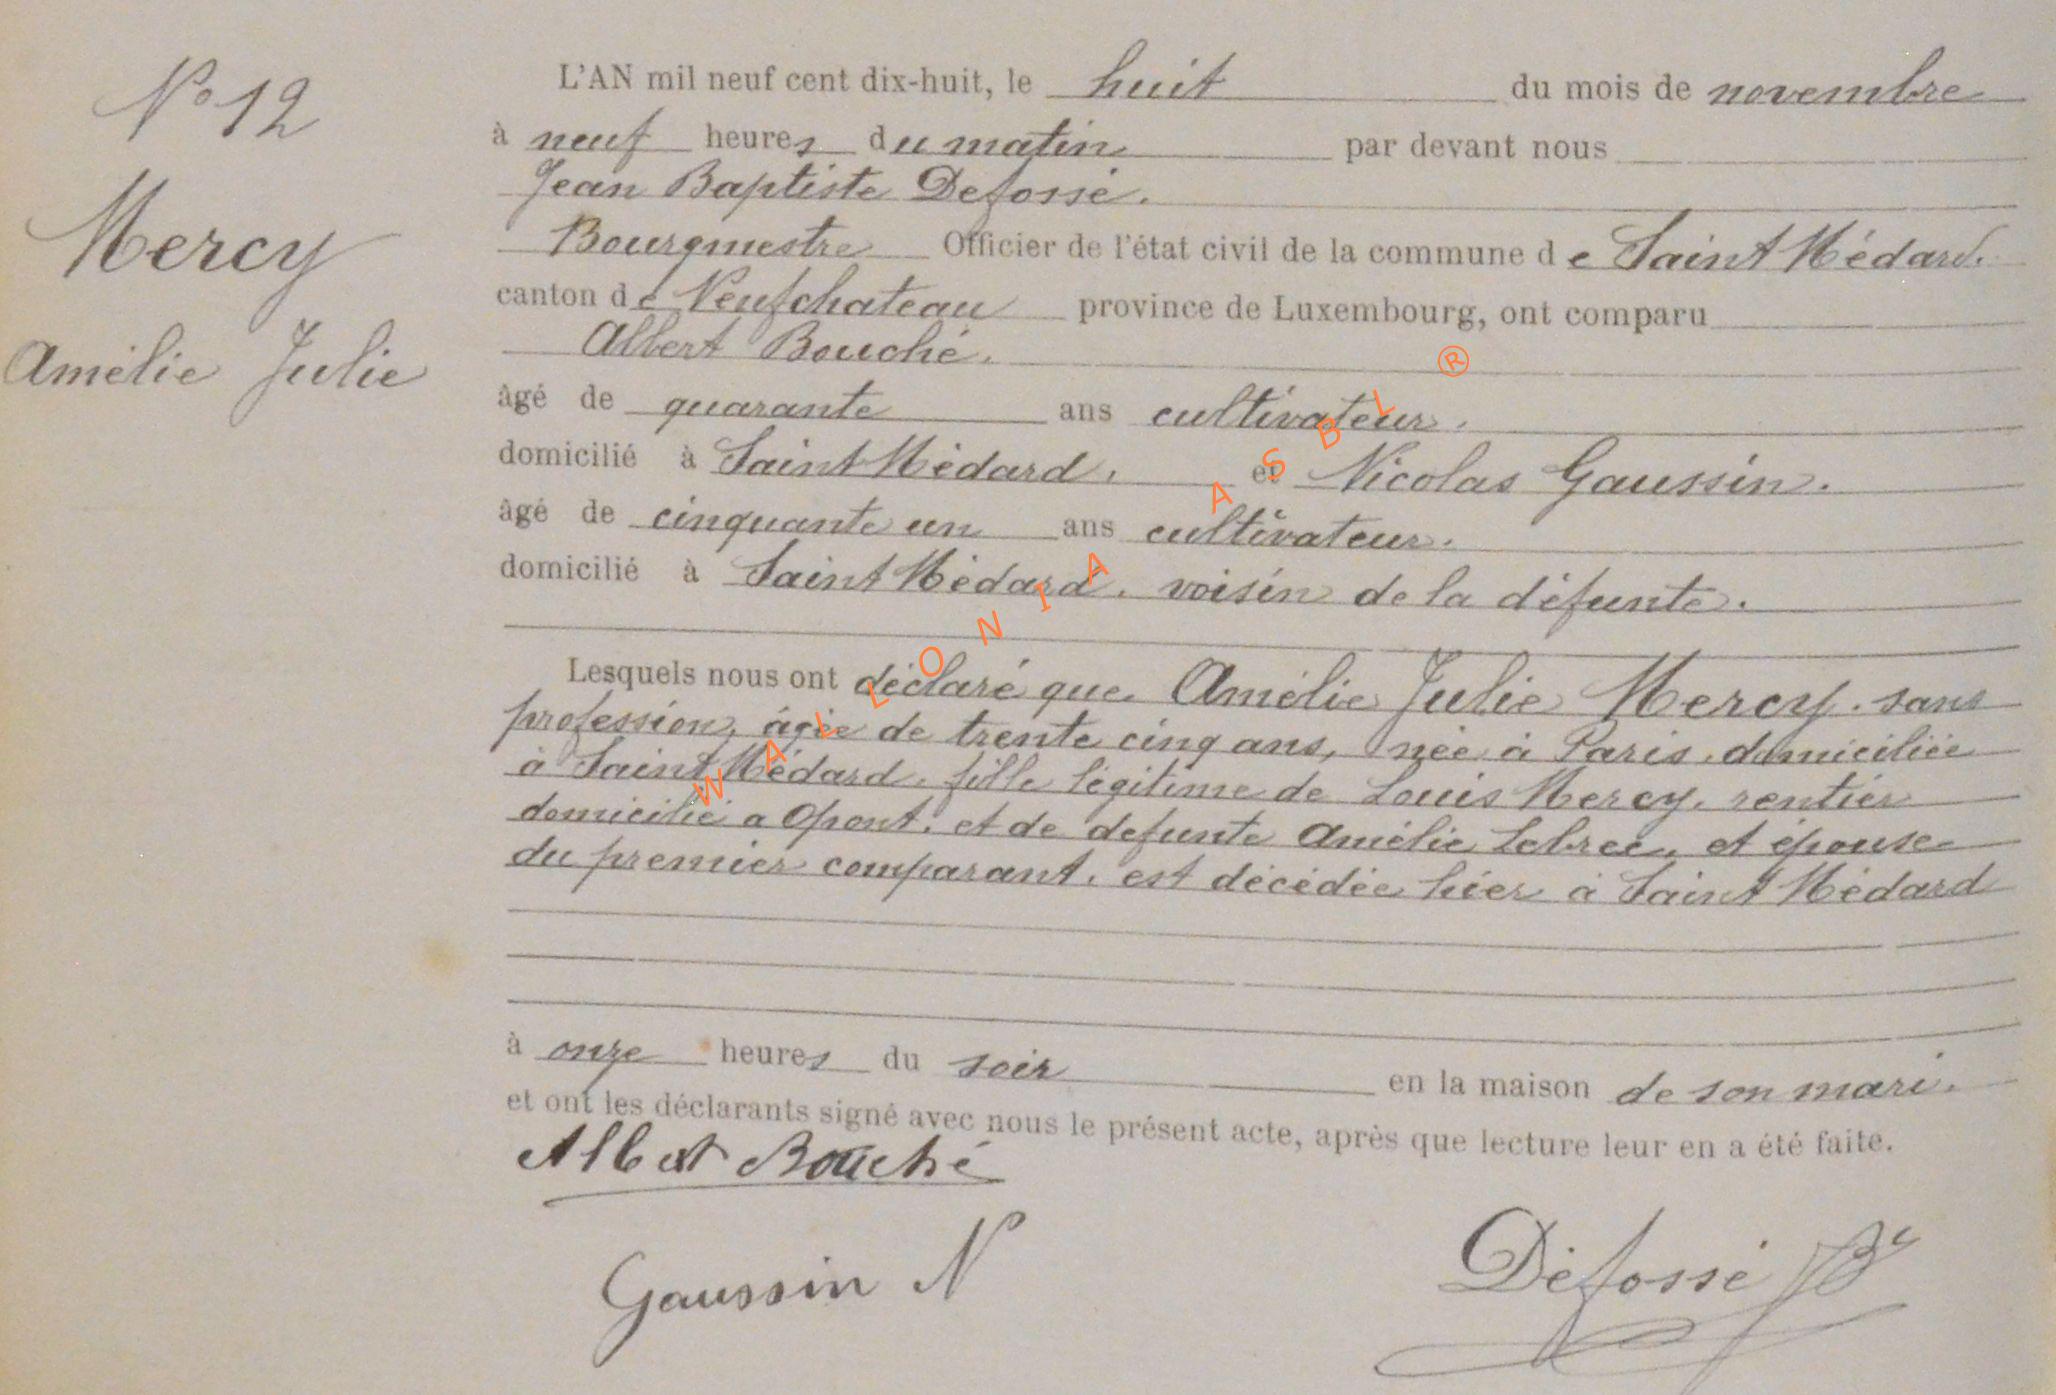 N° 12
Mercy
Amélie Julie
L'AN mil neuf cent dix-huit, le huit du mois de novembre
à neuf heures du matin par devant nous
Jean Baptiste Defossé.
Bourgmestre Officier de l'état civil de la commune de Saint Médard.
canton de Neufchateau province de Luxembourg, ont comparu
Albert Bouché.
âgé de quarante ans cultivateur.
domicilié à Saint Médard. et Nicolas Gaussin.
âgé de cinquante un ans cultivateur.
domicilié à Saint Médard. voisin de la défunte.
Lesquels nous ont déclaré que Amélie Julie Mercy. sans
profession, âgée de trente cinq ans, née à Paris. domiciliée
à Saint Médard. fille légitime de Louis Mercy. rentier
domicilié a Opont. et de defunte Amélie Lebrec, et épouse
du premier comparant. est décédée hier à Saint Médard
à onze heures du soir en la maison de son mari.
et ont les déclarants signé avec nous le présent acte, après que lecture leur en a été faite.
Albert Bouché
Gaussin N
Défossé
WALLONIA ASBL ®